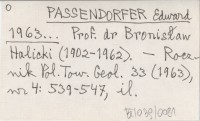 O
PASSENDORFER Edward
1963... Prof. dr Bronisław
Halicki (1902-1962). - Rocz-
nik Pol. Tow. Geol. 33 (1963),
nr 4: 539-547, il.